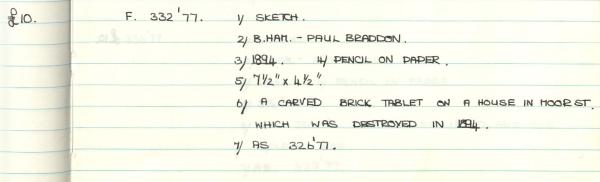 £10. F. 332'77. 1/ SKETCH.
2/ B.HAM. - PAUL BRADDON.
3/ 1894. 4/ PENCIL ON PAPER.
5/ 7½" x 4½".
6/ A CARVED BRICK TABLET ON A HOUSE IN MOOR ST.
WHICH WAS DESTROYED IN 1894.
7/ AS 326'77.